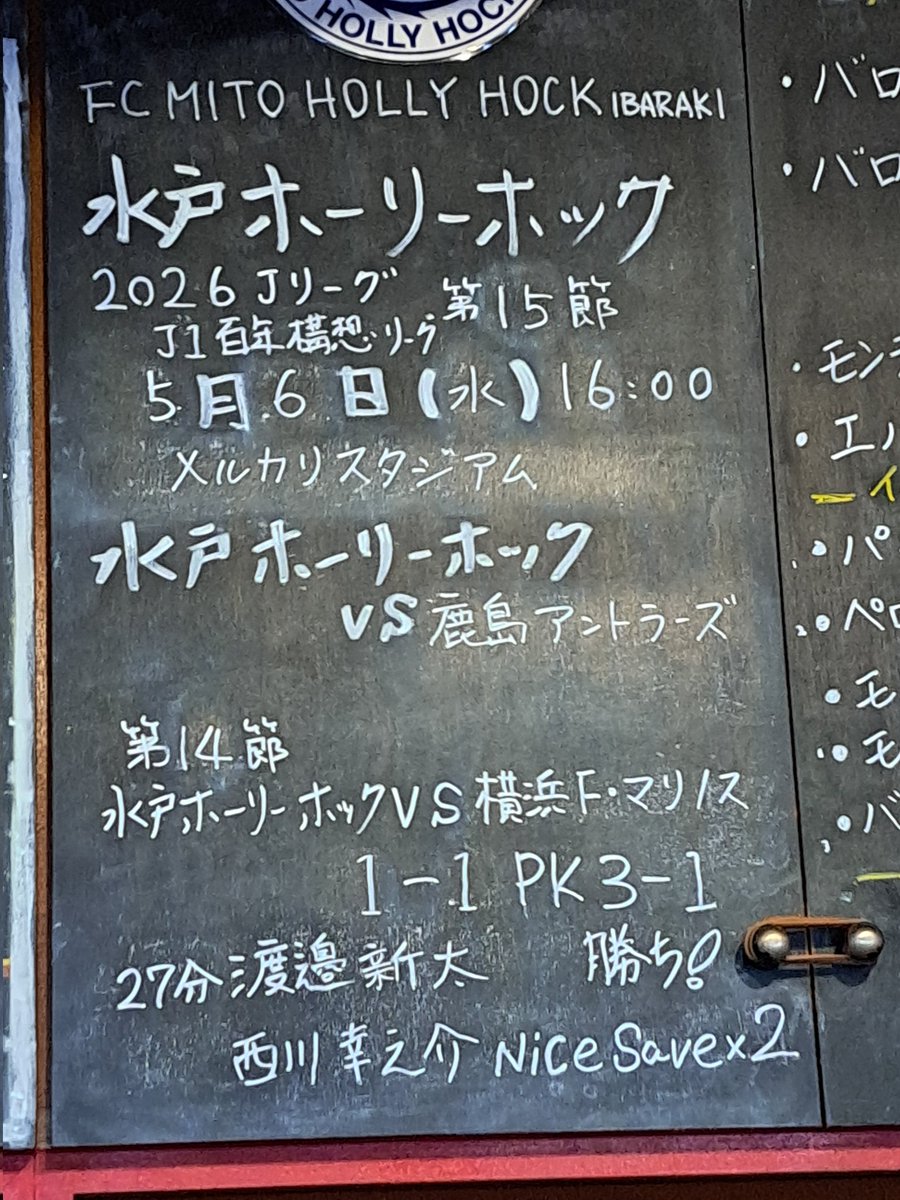 HOLLY HOCK
FC MITO HOLLY HOCK IBARAKI
水戸ホーリーホック
2026 Jリーグ 第15節
J1百年構想リーグ
5月6日(水)16:00
メルカリスタジアム
水戸ホーリーホック
vs鹿島アントラーズ
第14節
水戸ホーリーホックVS横浜F・マリノス
1-1 PK3-1
27分渡邉新太 勝ち!
西川幸之介 Nice Save×2
・バロ
・バロ
・モン
・エ
・パ
・ペロ
・モ
・モ
・バ